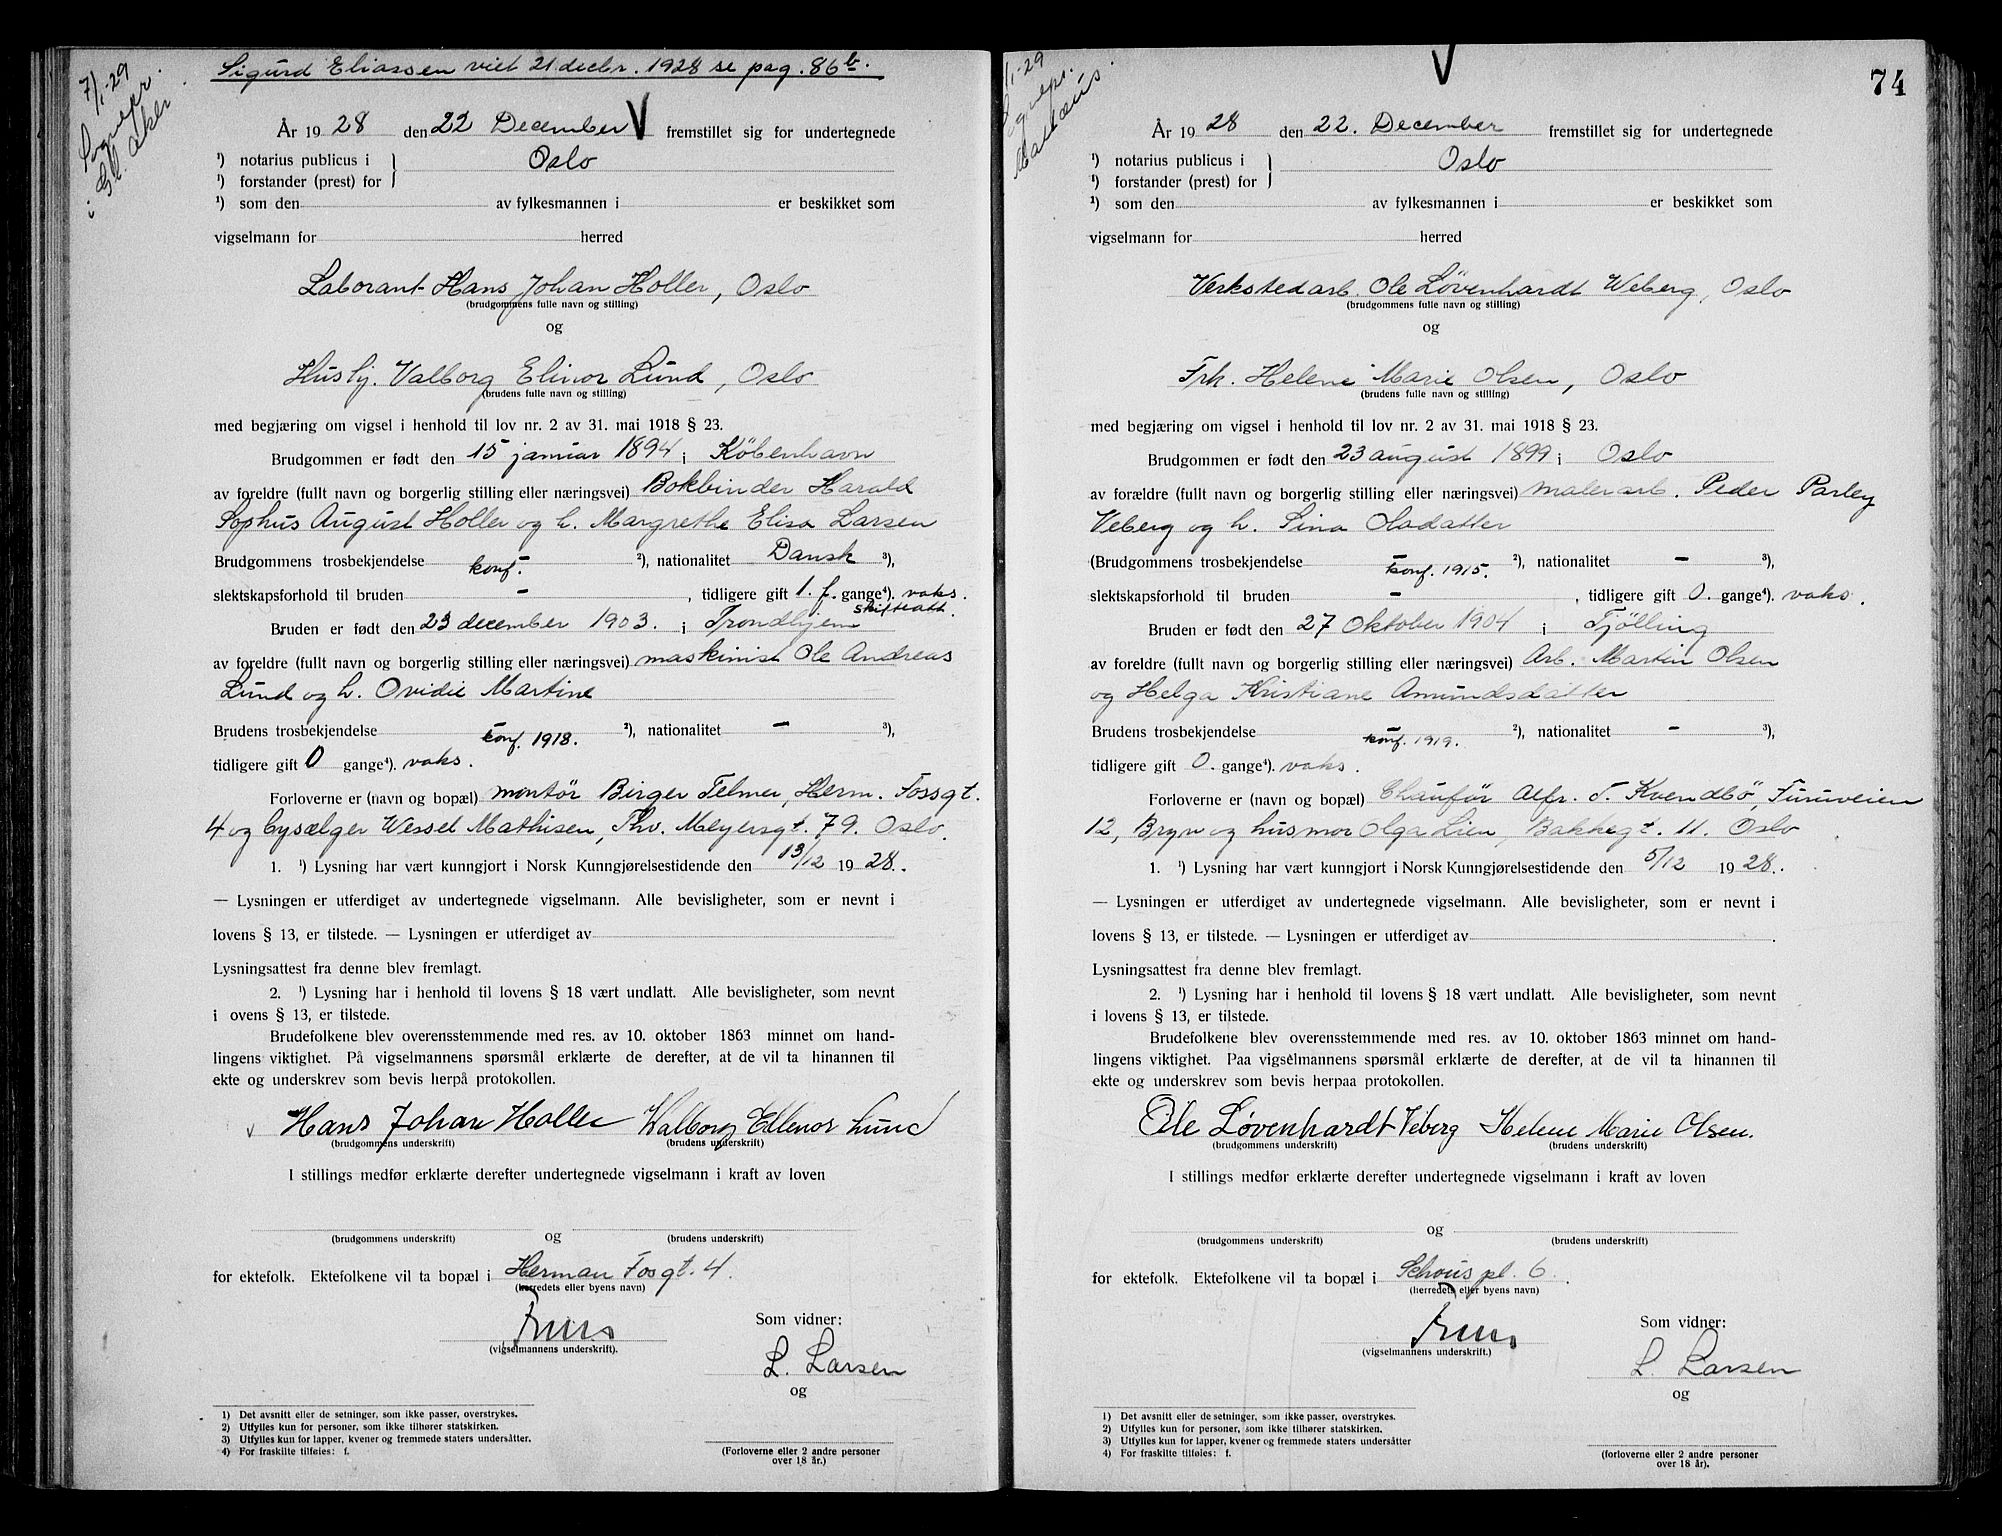 Sigurd Eliassen viet 21 decbr. 1928 se pag. 86 b.
7/1-29
Sognepr.
i Gl. Aker
År 19 28 den 22 December V fremstillet sig for undertegnede
¹) notarius publicus i } Oslo
¹) forstander (prest) for
¹) som den av fylkesmannen i er beskikket som
vigselmann for herred
Laborant Hans Johan Holler, Oslo
(brudgommens fulle navn og stilling)
og
Husbj. Valborg Elinor Lund, Oslo
(brudens fulle navn og stilling)
med begjæring om vigsel i henhold til lov nr. 2 av 31. mai 1918 § 23.
Brudgommen er født den 15 januar 1894 i København
av foreldre (fullt navn og borgerlig stilling eller næringsvei) Bokbinder Harald
Sophus August Holler og h. Margrethe Elisa Larsen
Brudgommens trosbekjendelse – ²), nationalitet Dansk ³),
konf.
slektskapsforhold til bruden – , tidligere gift 1. f. gange⁴). vaks.
skifteatt.
Bruden er født den 23 december 1903. i Trondhjem
av foreldre (fullt navn og borgerlig stilling eller næringsvei) maskinist Ole Andreas
Lund og h. Ovidie Martine
Brudens trosbekjendelse – ²), nationalitet – ³),
konf. 1918.
tidligere gift 0 gange⁴). vaks.
Forloverne er (navn og bopæl) montør Birger Telmer, Herm. Fossgt.
4 og bysælger Wessel Mathisen, Thv. Meyersgt. 79. Oslo.
1. ¹) Lysning har vært kunngjort i Norsk Kunngjørelsestidende den 13/12 19 28.
— Lysningen er utferdiget av undertegnede vigselmann. Alle bevisligheter, som er nevnt i
lovens § 13, er tilstede. — Lysningen er utferdiget av
Lysningsattest fra denne blev fremlagt.
2. ¹) Lysning har i henhold til lovens § 18 vært undlatt. Alle bevisligheter, som nevnt
i ovens § 13, er tilstede.
Brudefolkene blev overensstemmende med res. av 10. oktober 1863 minnet om hand-
lingens viktighet. På vigselmannens spørsmål erklærte de derefter, at de vil ta hinannen til
ekte og underskrev som bevis herpå protokollen.
v Hans Johan Holler Walborg Ellenor Lund
(brudgommens underskrift) (brudens underskrift)
I stillings medfør erklærte derefter undertegnede vigselmann i kraft av loven
og
(brudgommens underskrift) (brudens underskrift)
for ektefolk. Ektefolkene vil ta bopæl i Herman Fosgt. 4.
(herredets eller byens navn)
Som vidner:
(vigselmannens underskrift).
L. Larsen
og
1) Det avsnitt eller de setninger, som ikke passer, overstrykes.
2) Utfylles kun for personer, som ikke tilhører statskirken.
3) Utfylles kun for lapper, kvener og fremmede staters undersåtter.
4) For fraskilte tilføies: f.
(Forloverne eller 2 andre personer
over 18 år.)
V
74
/1-29
Sognepr.
Matæus.
År 19 28 den 22. December fremstillet sig for undertegnede
¹) notarius publicus i } Oslo
¹) forstander (prest) for
¹) som den av fylkesmannen i er beskikket som
vigselmann for herred
Verkstedarb. Ole Løvenhardt Weberg, Oslo
(brudgommens fulle navn og stilling)
og
Frk. Helene Marie Olsen, Oslo
(brudens fulle navn og stilling)
med begjæring om vigsel i henhold til lov nr. 2 av 31. mai 1918 § 23.
Brudgommen er født den 23 august 1899 i Oslo
av forældre (fullt navn og borgerlig stilling eller næringsvei) malerarb. Peder Parley
Veberg og h. Sina Oladatter
(Brudgommens trosbekjendelse – ²), nationalitet – ³),
konf. 1915.
slektskapsforhold til bruden – , tidligere gift 0. gange⁴). vaks.
Bruden er født den 27 Oktober 1904 i Tjølling
av foreldre (fullt navn og borgerlig stilling eller næringsvei) Arb. Martin Olsen
og Helga Kristiane Amundsdatter
Brudens trosbekjendelse – ²), nationalitet – ³),
konf. 1919.
tidligere gift 0. gange⁴). vaks.
Forloverne er (navn og bopæl) Chaufør Alfr. T. Kvendbø, Furuveien
12, Bryn og husmor Olga Lien, Bakkegt. 11. Oslo
1. ¹) Lysning har vært kunngjort i Norsk Kunngjørelsestidende den 5/12 19 28.
— Lysningen er utferdiget av undertegnede vigselmann. Alle bevisligheter, som er nevnt i
lovens § 13, er tilstede. — Lysningen er utferdiget av .
Lysningsattest fra denne blev fremlagt.
2. ¹) Lysning har i henhold til lovens § 18 vært undlatt. Alle bevisligheter, som nevnt
i lovens § 13, er tilstede.
Brudefolkene blev overensstemmende med res. av 10. oktober 1863 minnet om hand-
lingens viktighet. Paa vigselmannens spørsmål erklærte de derefter, at de vil ta hinannen til
ekte og underskrev som bevis herpaa protokollen.
Ole Løvenhardt Veberg Helene Marie Olsen.
(brudgommens underskrift) (brudens underskrift)
I stillings medfør erklærte derefter undertegnede vigselmann i kraft av loven
og
(brudgommens underskrift) (brudens underskrift)
for ektefolk. Ektefolkene vil ta bopæl i Schous pl. 6.
(herredets eller byens navn)
Som vidner:
(vigselmannens underskrift.)
L. Larsen
og
1) Det avsnitt eller de setninger, som ikke passer, overstrykes.
2) Utfylles kun for personer, som ikke tilhører statskirken.
3) Utfylles kun for lapper, kvener og fremmede staters undersåtter
4) For fraskilte tilføies: f.
(forloverne eller 2 andre personer
over 18 år).